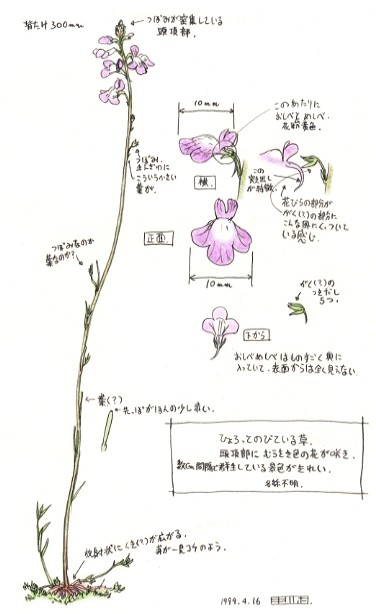 背たけ 300mm
つぼみが密集している
頭頂部。
10mm
このあたりに
おしべとめしべ。
花粉黄色。
つぼみ。
こういう小さい
葉が。
横。
この
突き出しが
特徴。
花びらの部分が
がく(?)の部分に
こんな風にくっついて
いる感じ。
正面
10mm
つぼみなのか
葉なのか?
がく(?)の
つきだし
5つ。
下から
おしべめしべはものすごく奥に
入っていて、表面からは全く見えない。
葉(?)
先っぽがほんの少し赤い。
ひょろってのびている草。
頭頂部にむらさき色の花が咲き、
数cm間隔で群生している景色がきれい。
名称不明。
放射状にくき(?)が広がる。
葉が一見コケのよう。
1999.4.16